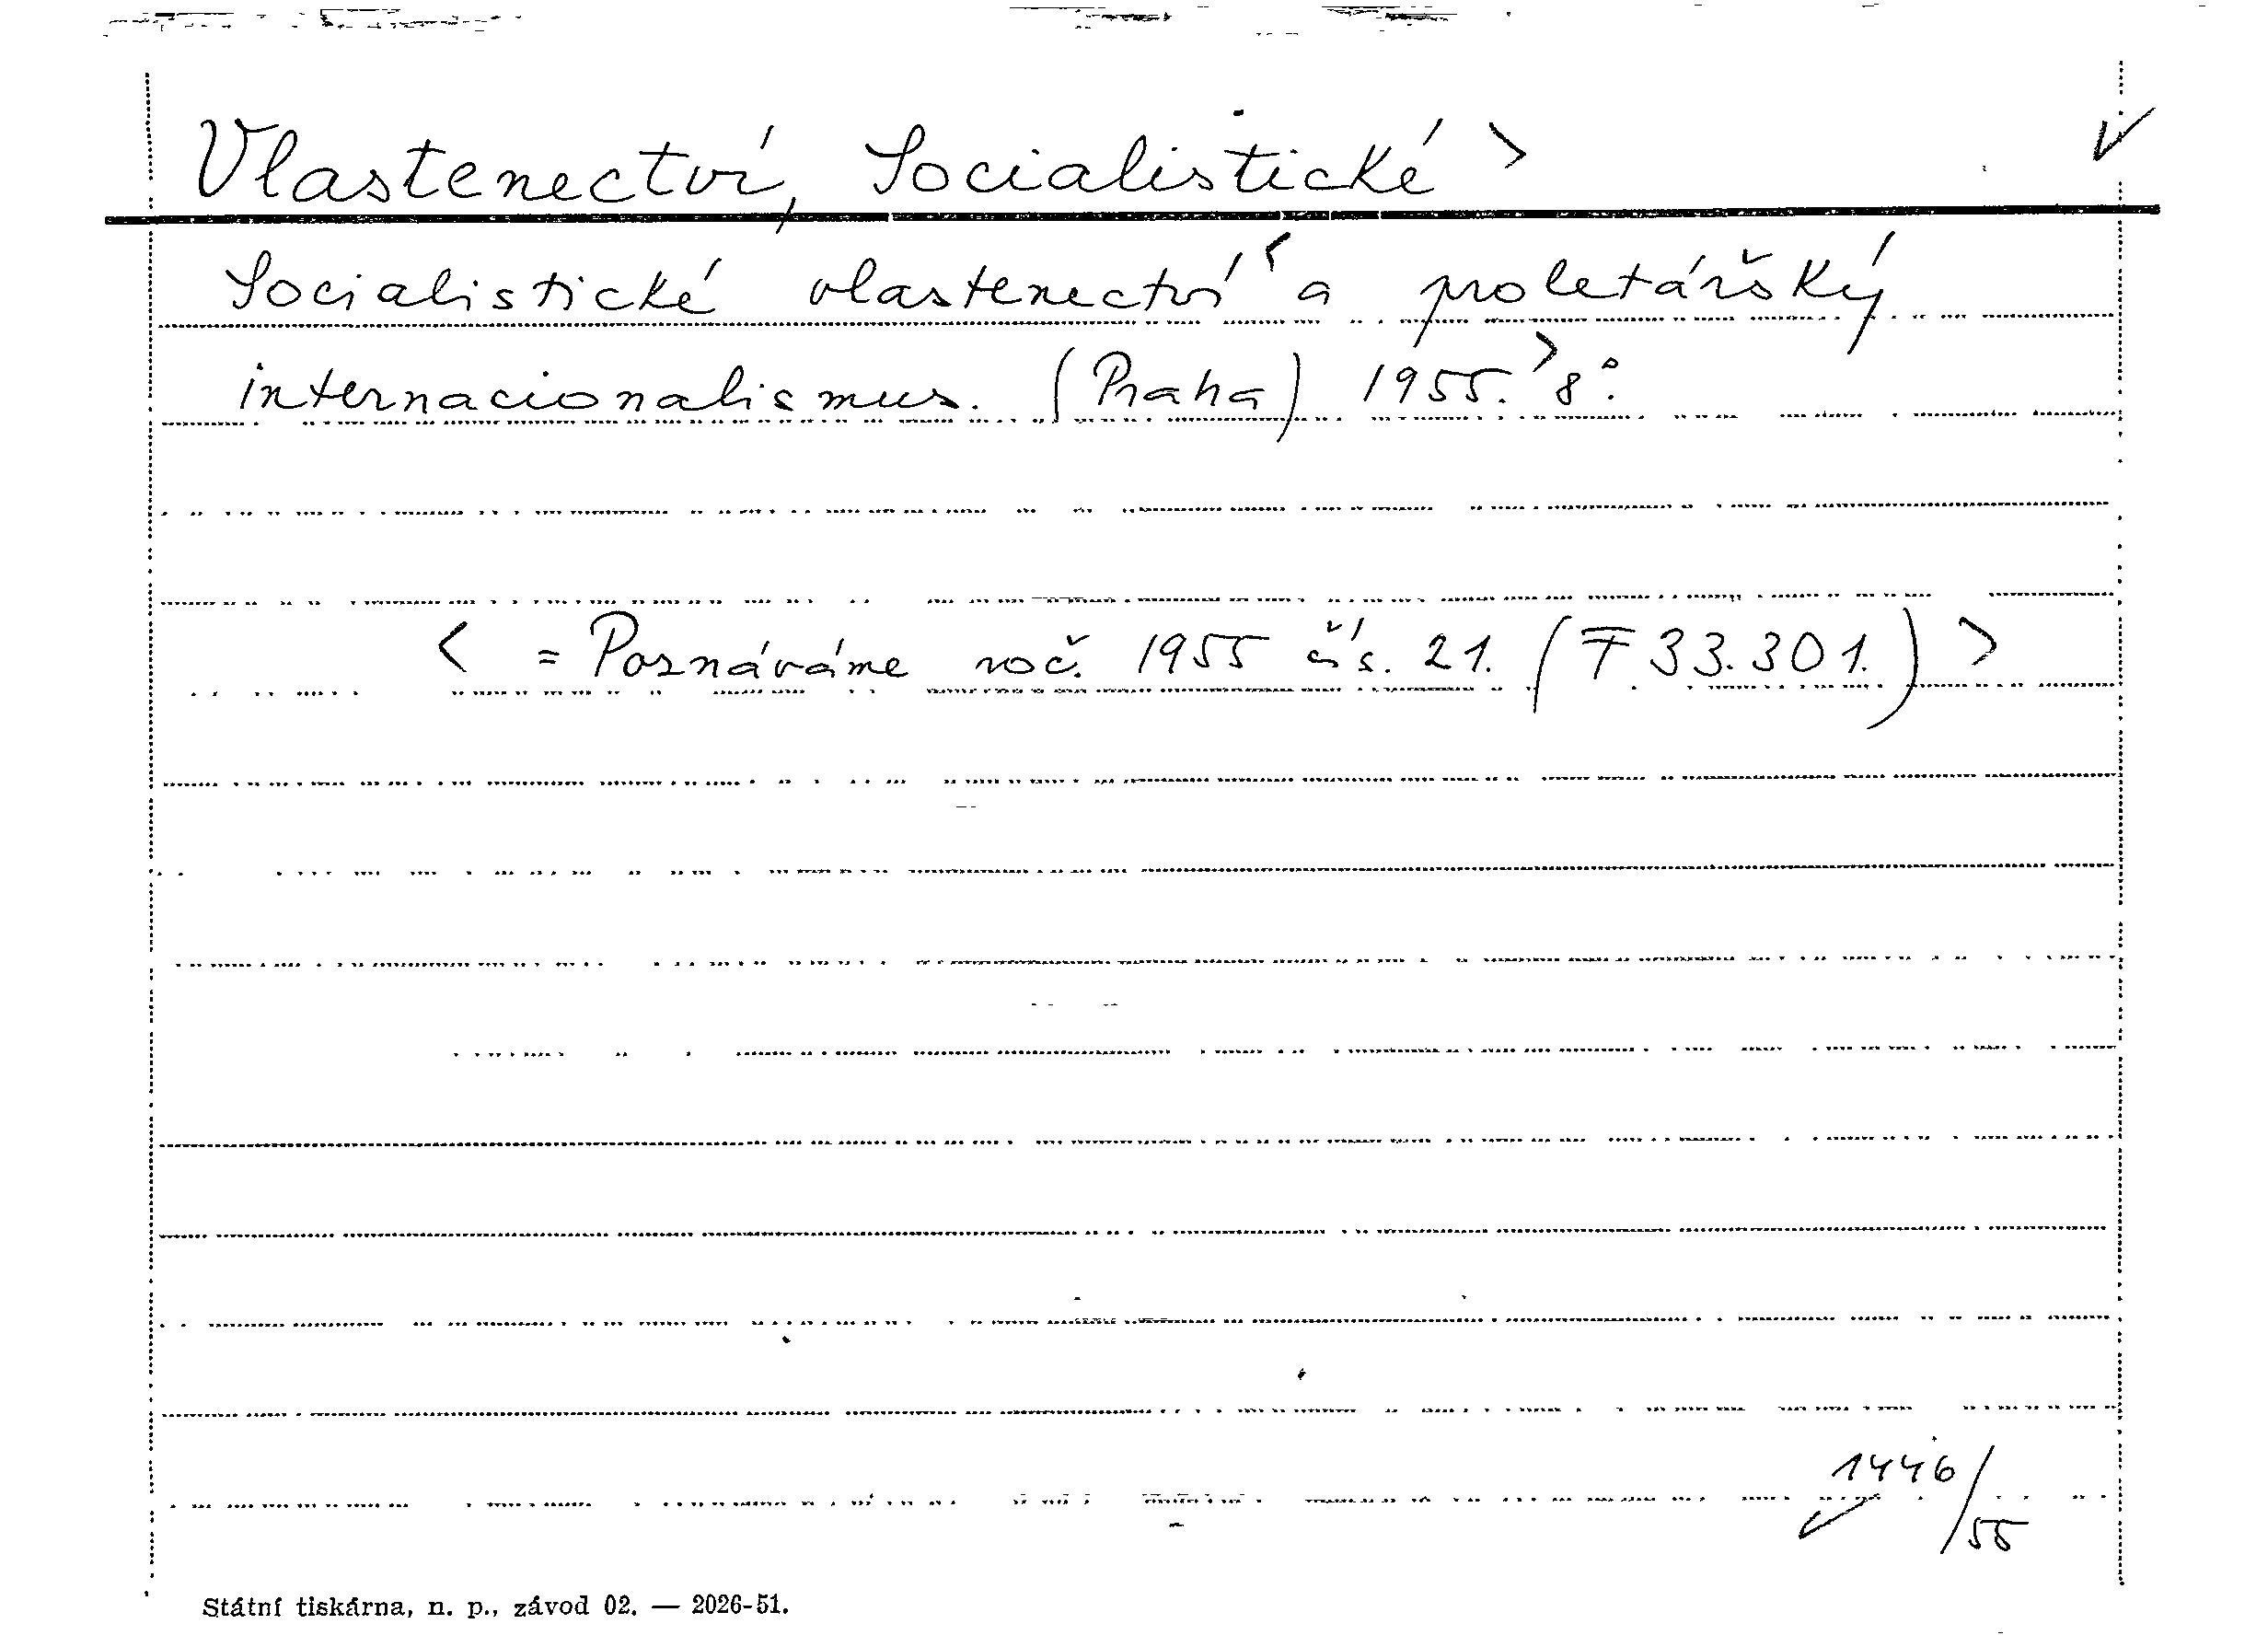 Vlastenectví, Socialistické > ✓
Socialistické vlastenectví < a proletářský
internacionalismus. (Praha) 1955. > 8°.
< = Poznáváme roč. 1955 čís. 21. (F 33.301.) >
1446/55
✓
Státní tiskárna, n. p., závod 02. — 2026-51.